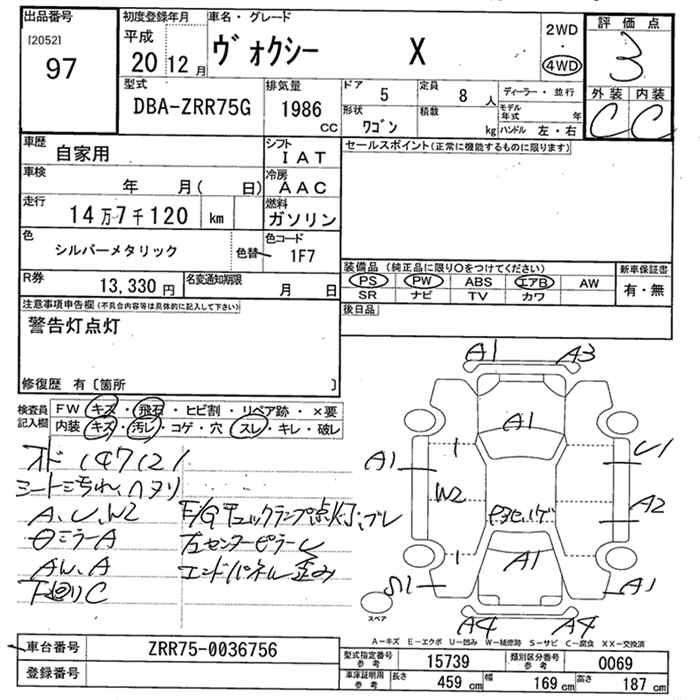 出品番号
[2052]
97
初度登録年月
平成
20 12月
車名・グレード
ヴォクシー X
2WD
・
4WD
評価点
3
外装 内装
C C
型式
DBA-ZRR75G
排気量
1986
CC
ドア 5
定員 8 人
形状 ワゴン
積載 kg
ディーラー・並行
モデル年式 年
ハンドル 左・右
車歴 自家用
シフト IAT
車検 年 月( 日)
冷房 AAC
走行 14万7千120 km
燃料 ガソリン
色 シルバーメタリック
色替
色コード 1F7
R券 13,330円
名変通知期限 月 日
セールスポイント(正常に機能するものに限ります)
装備品(純正品に限り○をつけてください)
PS PW ABS エアB AW
SR ナビ TV カワ
新車保証書
有・無
後日品
注意事項申告欄(不具合内容等は具体的に記入して下さい)
警告灯点灯
修復歴 有〔箇所 〕
検査員記入欄
FW キズ・飛石・ヒビ割・リペア跡・×要
内装 キズ・汚レ・コゲ・穴・スレ・キレ・破レ
オド 147121
シートヨゴれ、ヘタリ
A、U、W2
F/Gチェックランプ点灯、ブレ
ミラーA
センターピラーU
A
エンドパネル歪み
下廻りC
A1 A3
A1
A1
U1
W2
A2
A1
S1
A1
A4 A4
スペア
A-キズ E-エクボ U-凹み W-補修跡 S-サビ C-腐食 XX-交換済
車台番号 ZRR75-0036756
登録番号
型式指定番号 参考 15739
類別区分番号 参考 0069
車庫証明用 参考 長さ 459 cm 幅 169 cm 高さ 187 cm